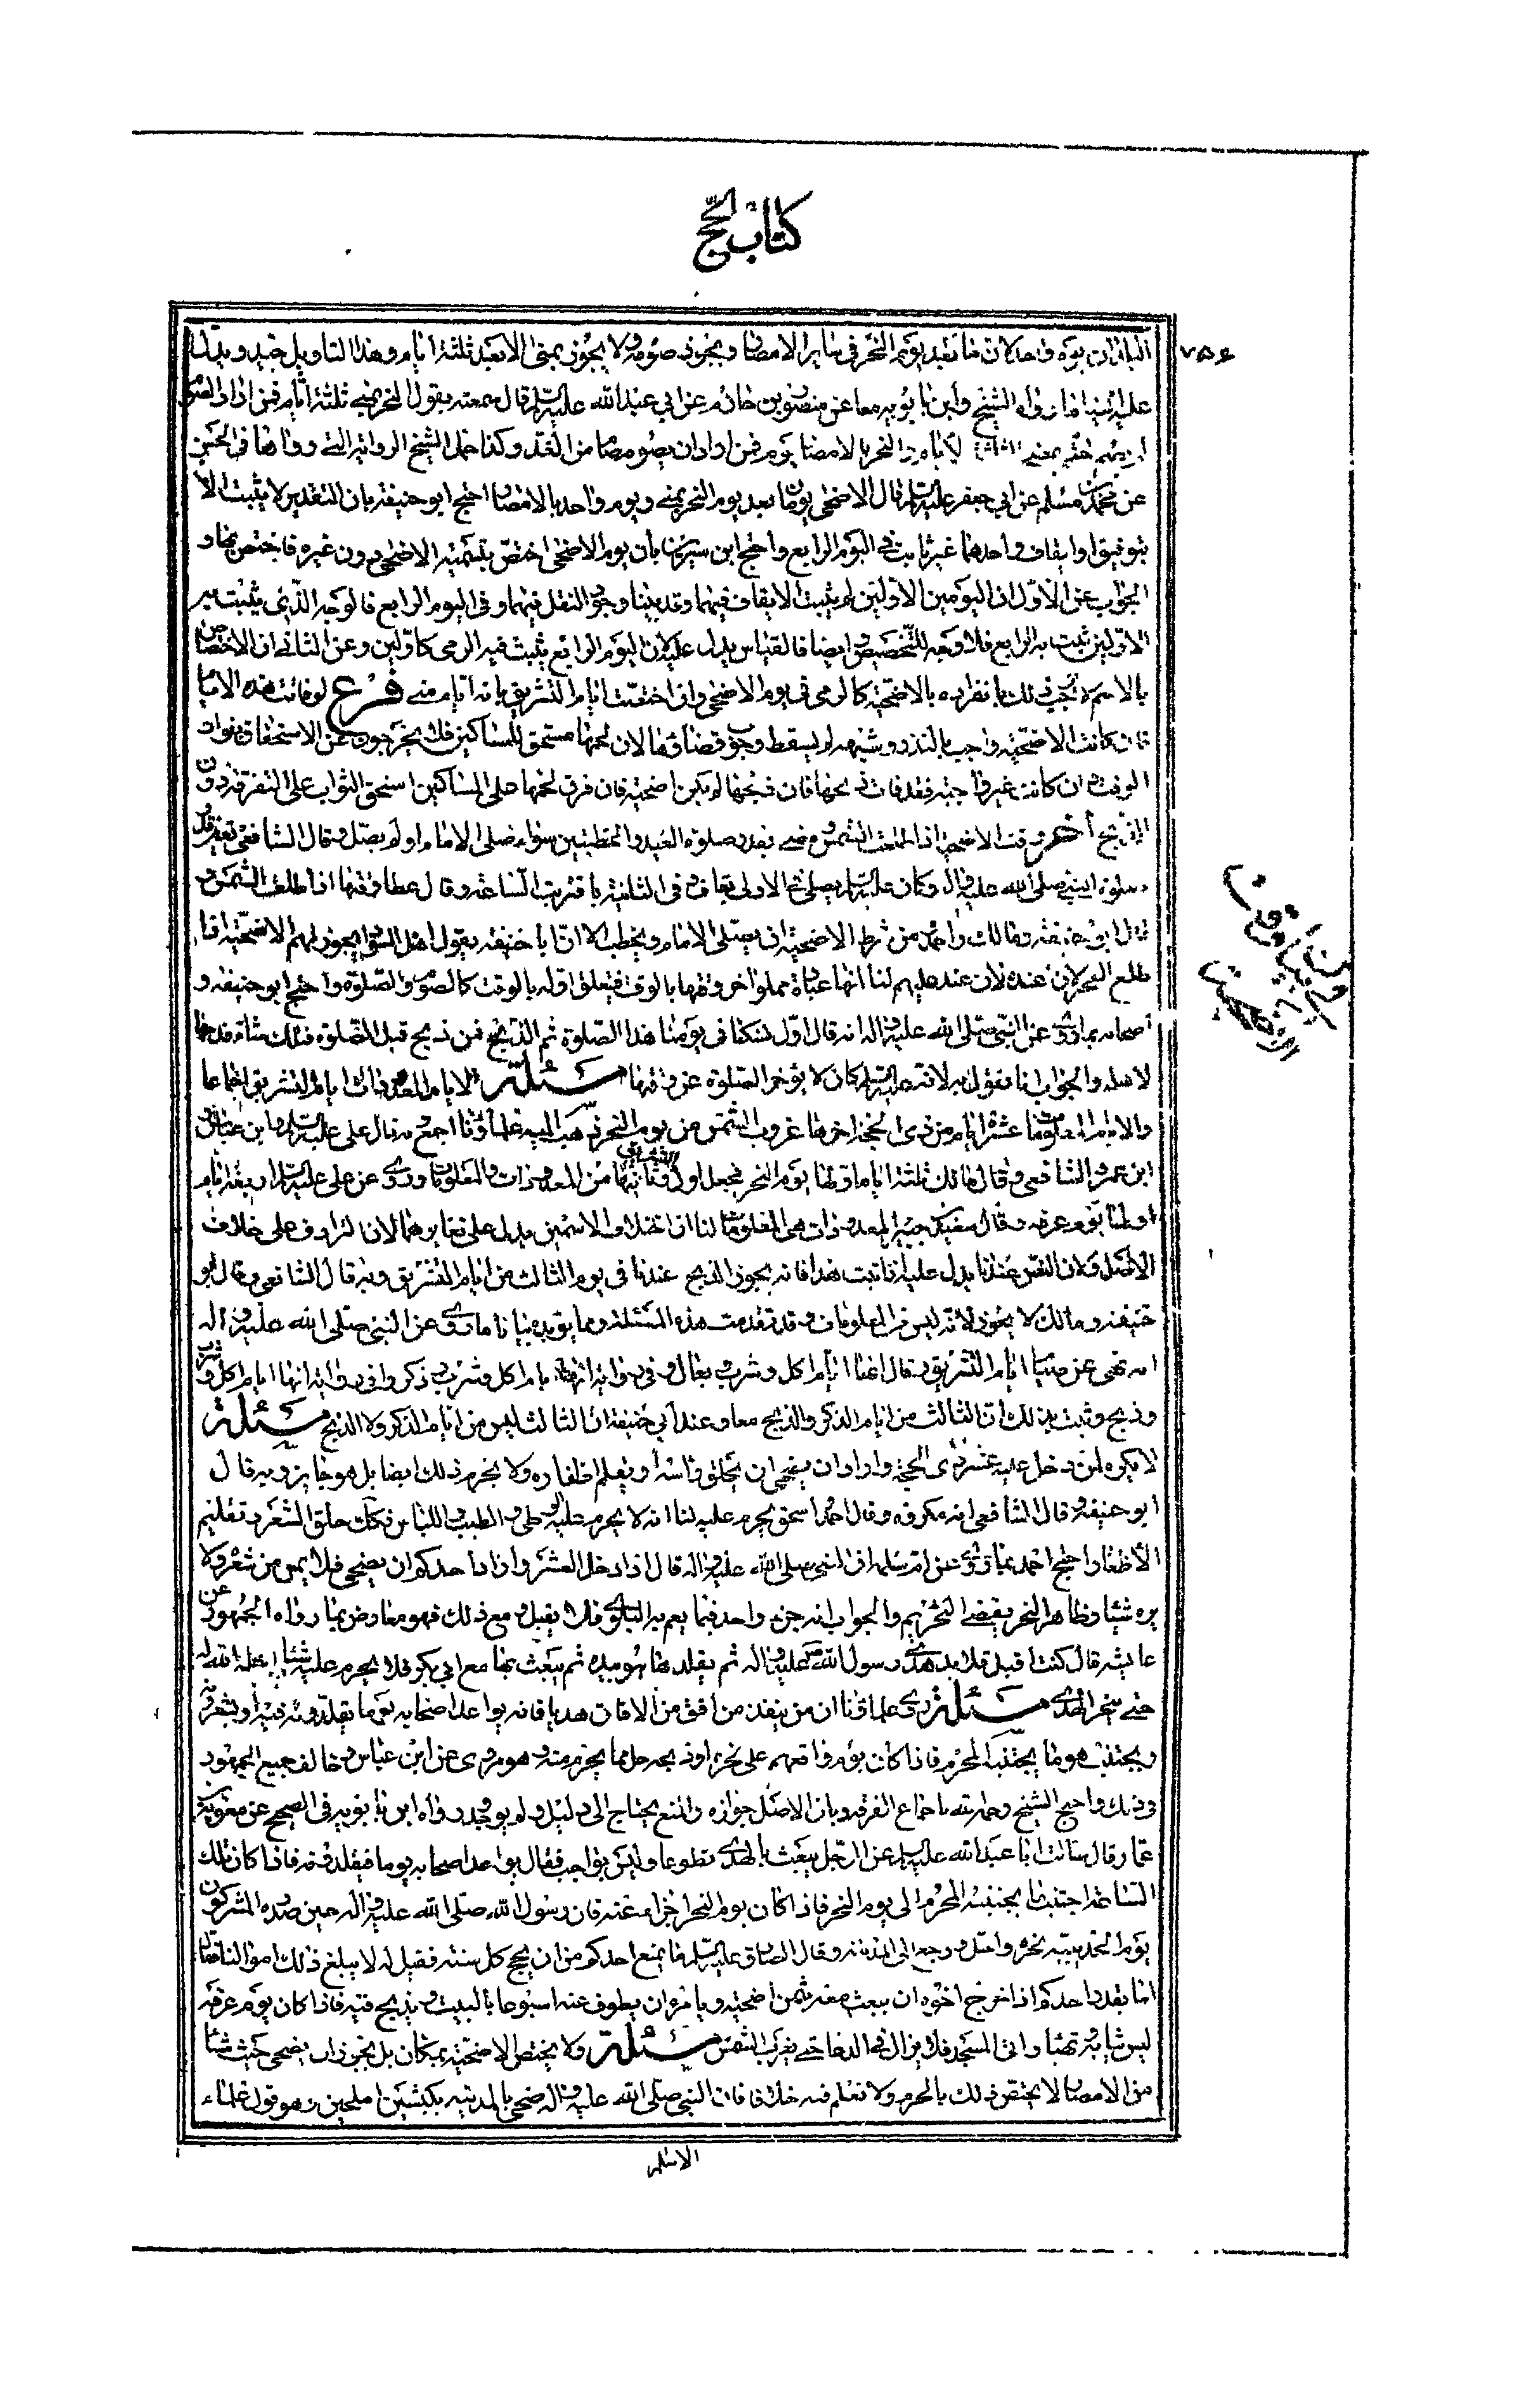 كتاب الحج
٧٥٦
الباقيان يوم واحد كان ما بعد يوم النحر في ساير الامصار ويجوز صومه ولا يجوز بمنى الا بعد ثلثة ايام وهذا التاويل جيد ويدل
عليه ايضا ما رواه الشيخ وابن بابويه معا عن منصور بن حازم عن ابي عبدالله عليه السلم قال سمعته يقول النحر بمنى ثلثة ايام فمن اراد الصوم
لم يصم حتى يمضى الثلثة الايام والنحر بالامصار يوم فمن اراد ان يصوم صام من الغد وكذا حمل الشيخ الرواية التي رواها في الحسن
عن محمد بن مسلم عن ابي جعفر عليه السلم قال الاضحى يومان بعد يوم النحر بمنى ويوم واحد بالامصار احتج ابو حنيفة بان التقدير لا يثبت الا
بتوقيف او اتفاق واحدهما غير ثابت في اليوم الرابع واحتج ابن سيرين بان يوم الاضحى اختص بتسمية الاضحى دون غيره فاختص بها و
الجواب عن الاول ان اليومين الاولين لم يثبت الاتفاق فيهما وقد بينا وجود النقل فيهما وفي اليوم الرابع فالوجه الذي يثبت به
الاولين ثبت به الرابع فلا وجه للتخصيص وايضا فالقياس يدل عليه لان اليوم الرابع يثبت فيه الرمي كاولين وعن الثاني ان الاختصاص
بالاسم لا يوجب ذلك بانفراده بالاضحية كالرمي في يوم الاضحى وان اختصت ايام التشريق بانه ايام منى فرع لو فاتت هذه الايام
فان كانت الاضحية واجبة بالنذر وشبهه لم يسقط وجوب قضاؤها لان لحمها مستحق للمساكين فلا يخرجون عن الاستحقاق بفوات
الوقت وان كانت غير واجبة فقد فات ذبحها فان ذبحها لم يكن اضحية فان فرق لحمها على المساكين استحق الثواب على التفرقة دون
الذبح آخر وقت الاضحية اذا طلعت الشمس ومضى بعد صلوة العيد والخطبتين سواء صلى الامام او لم يصل وقال الشافعي
صلوة النبي صلى الله عليه وآله وكان عليه السلم يصلي في الاولى بقاف وفي الثانية باقتربت الساعة وقال عطا وقتها اذا طلعت الشمس و
قال ابو حنيفة ومالك واحمد من شرط الاضحية ان يصلي الامام ويخطب الا ان ابا حنيفة يقول اهل السواد يجوز لهم الاضحية اذا
طلع الفجر لان عنده لا عيد عليهم لنا انها عبادة تعلق آخر وقتها بالوقت فيتعلق اوله بالوقت كالصوم والصلوة واحتج ابو حنيفة و
اصحابه بما روى عن النبي صلى الله عليه وآله انه قال اول نسكنا في يومنا هذا الصلوة ثم الذبح فمن ذبح قبل الصلوة فتلك شاة قدمها
لاهله والجواب انا نقول به لانه عليه السلم كان لا يؤخر الصلوة عن وقتها مسئلة الايام المعدودات ايام التشريق اجماعا
والايام المعلومات عشرة ايام من ذي الحجة اخرها غروب الشمس من يوم النحر ذهب اليه علماؤنا اجمع وبه قال علي عليه السلم وابن عباس و
ابن عمر والشافعي وقال مالك ثلثة ايام اولها يوم النحر فجعل اول التشريق وثانيها من المعدودات والمعلومات وروى عن علي عليه السلم اربعة ايام
اولها يوم عرفة وقال سعيد بن جبير المعدودات هي المعلومات لنا ان اختلاف الاسمين يدل على تغايرهما لان الترادف على خلاف
الاصل ولان النص عندنا يدل عليه اذا ثبت هذا فانه يجوز الذبح عندنا في يوم الثالث من ايام التشريق وبه قال الشافعي وقال ابو
حنيفة ومالك لا يجوز لانه ليس من المعلومات وقد تقدمت هذه المسئلة ومما يؤيده بيانا ما روى عن النبي صلى الله عليه وآله
انه نهى عن صيام ايام التشريق وقال انها ايام اكل وشرب وبعال وفي رواية انها ايام اكل وشرب وذكر وفي رواية انها ايام اكل وشرب
وذبح وثبت بذلك ان الثالث من ايام الذكر والذبح معا وعند ابي حنيفة ان الثالث ليس من ايام الذكر ولا الذبح مسئلة
لا يكره لمن دخل عليه عشر ذي الحجة واراد ان يضحي ان يحلق رأسه او يقلم اظفاره ولا يحرم ذلك ايضا بل هو جايز وبه قال
ابو حنيفة وقال الشافعي انه مكروه وقال احمد واسحق يحرم عليه لنا انه لا يحرم عليه الوطي والطيب واللباس فكذلك حلق الشعر وتقليم
الاظفار احتج احمد بما روى عن ام سلمة ان النبي صلى الله عليه وآله قال اذا دخل العشر واراد احدكم ان يضحي فلا يمس من شعره ولا
بشره شيئا وظاهر النهي يقتضي التحريم والجواب انه خبر واحد فيما يعم به البلوى فلا يقبل ومع ذلك فهو معارض بما رواه الجمهور عن
عايشة قال كنت افتل قلائد هدي رسول الله صلى الله عليه وآله ثم يقلدها هو بيده ثم يبعث بها مع ابي بكر فلا يحرم عليه شيئا احله الله له
حتى ينحر الهدي مسئلة روى علماؤنا ان من ينفذ من افق من الافاق هديا فانه يواعد اصحابه يوما يقلدونه فيه او يشعرونه
ويجتنب هو ما يجتنبه المحرم فاذا كان يوم واقعهم على نحره او ذبحه حل مما يحرم منه وهو مروى عن ابن عباس وخالف جميع الجمهور
في ذلك واحتج الشيخ رحمه الله باجماع الفرقة وبان الاصل جوازه والمنع يحتاج الى دليل ولم يوجد ورواه ابن بابويه في الصحيح عن معوية بن
عمار قال سألت ابا عبدالله عليه السلم عن الرجل يبعث بالهدي تطوعا وليس بواجب فقال يواعد اصحابه يوما فيقلدونه فاذا كان تلك
الساعة اجتنب ما يجتنبه المحرم الى يوم النحر فاذا كان يوم النحر اجزأ عنه فان رسول الله صلى الله عليه وآله حين صده المشركون
يوم الحديبية نحره واحل ورجع الى المدينة وقال الصادق عليه السلم ما يمنع احدكم من ان يحج كل سنة فقيل له لا يبلغ ذلك اموالنا فقال
اما يقدر احدكم اذا خرج اخوه ان يبعث معه بثمن اضحية ويامره ان يطوف عنه اسبوعا بالبيت ويذبح عنه فاذا كان يوم عرفة
لبس ثيابه وتهيأ واتى المسجد فلا يزال في الدعا حتى يغرب الشمس مسئلة ولا يختص الاضحية بمكان بل يجوز ان يضحي حيث شاء
من الامصار لا يختص ذلك بالحرم ولا نعلم فيه خلافا فان النبي صلى الله عليه وآله ضحى بالمدينة بكبشين املحين وهو قول علماء
الاسلم